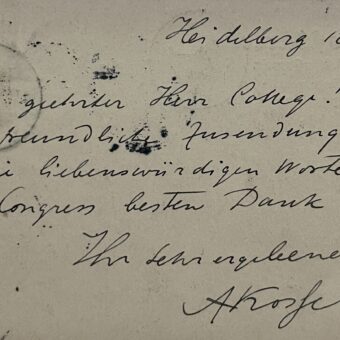 Heidelberg 1
geehrter Herr College!
freundliche Zusendung
liebenswürdigen Worte
Congress besten Dank
Ihr sehr ergebene
AKosse